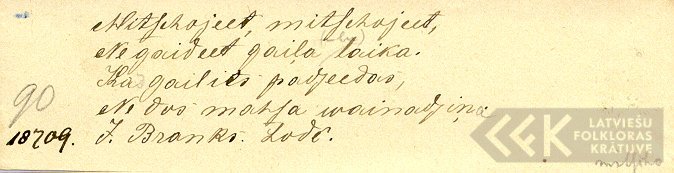 Mitschojeet, mitschojeet,
Ne gaideet gaiļa laika.
Ka gailics padzeedas,
Ne dos mahsa wainadziņa
90
18709. J. Branks. Lodē.
LATVIEŠU
FOLKLORAS
KRĀTUVE